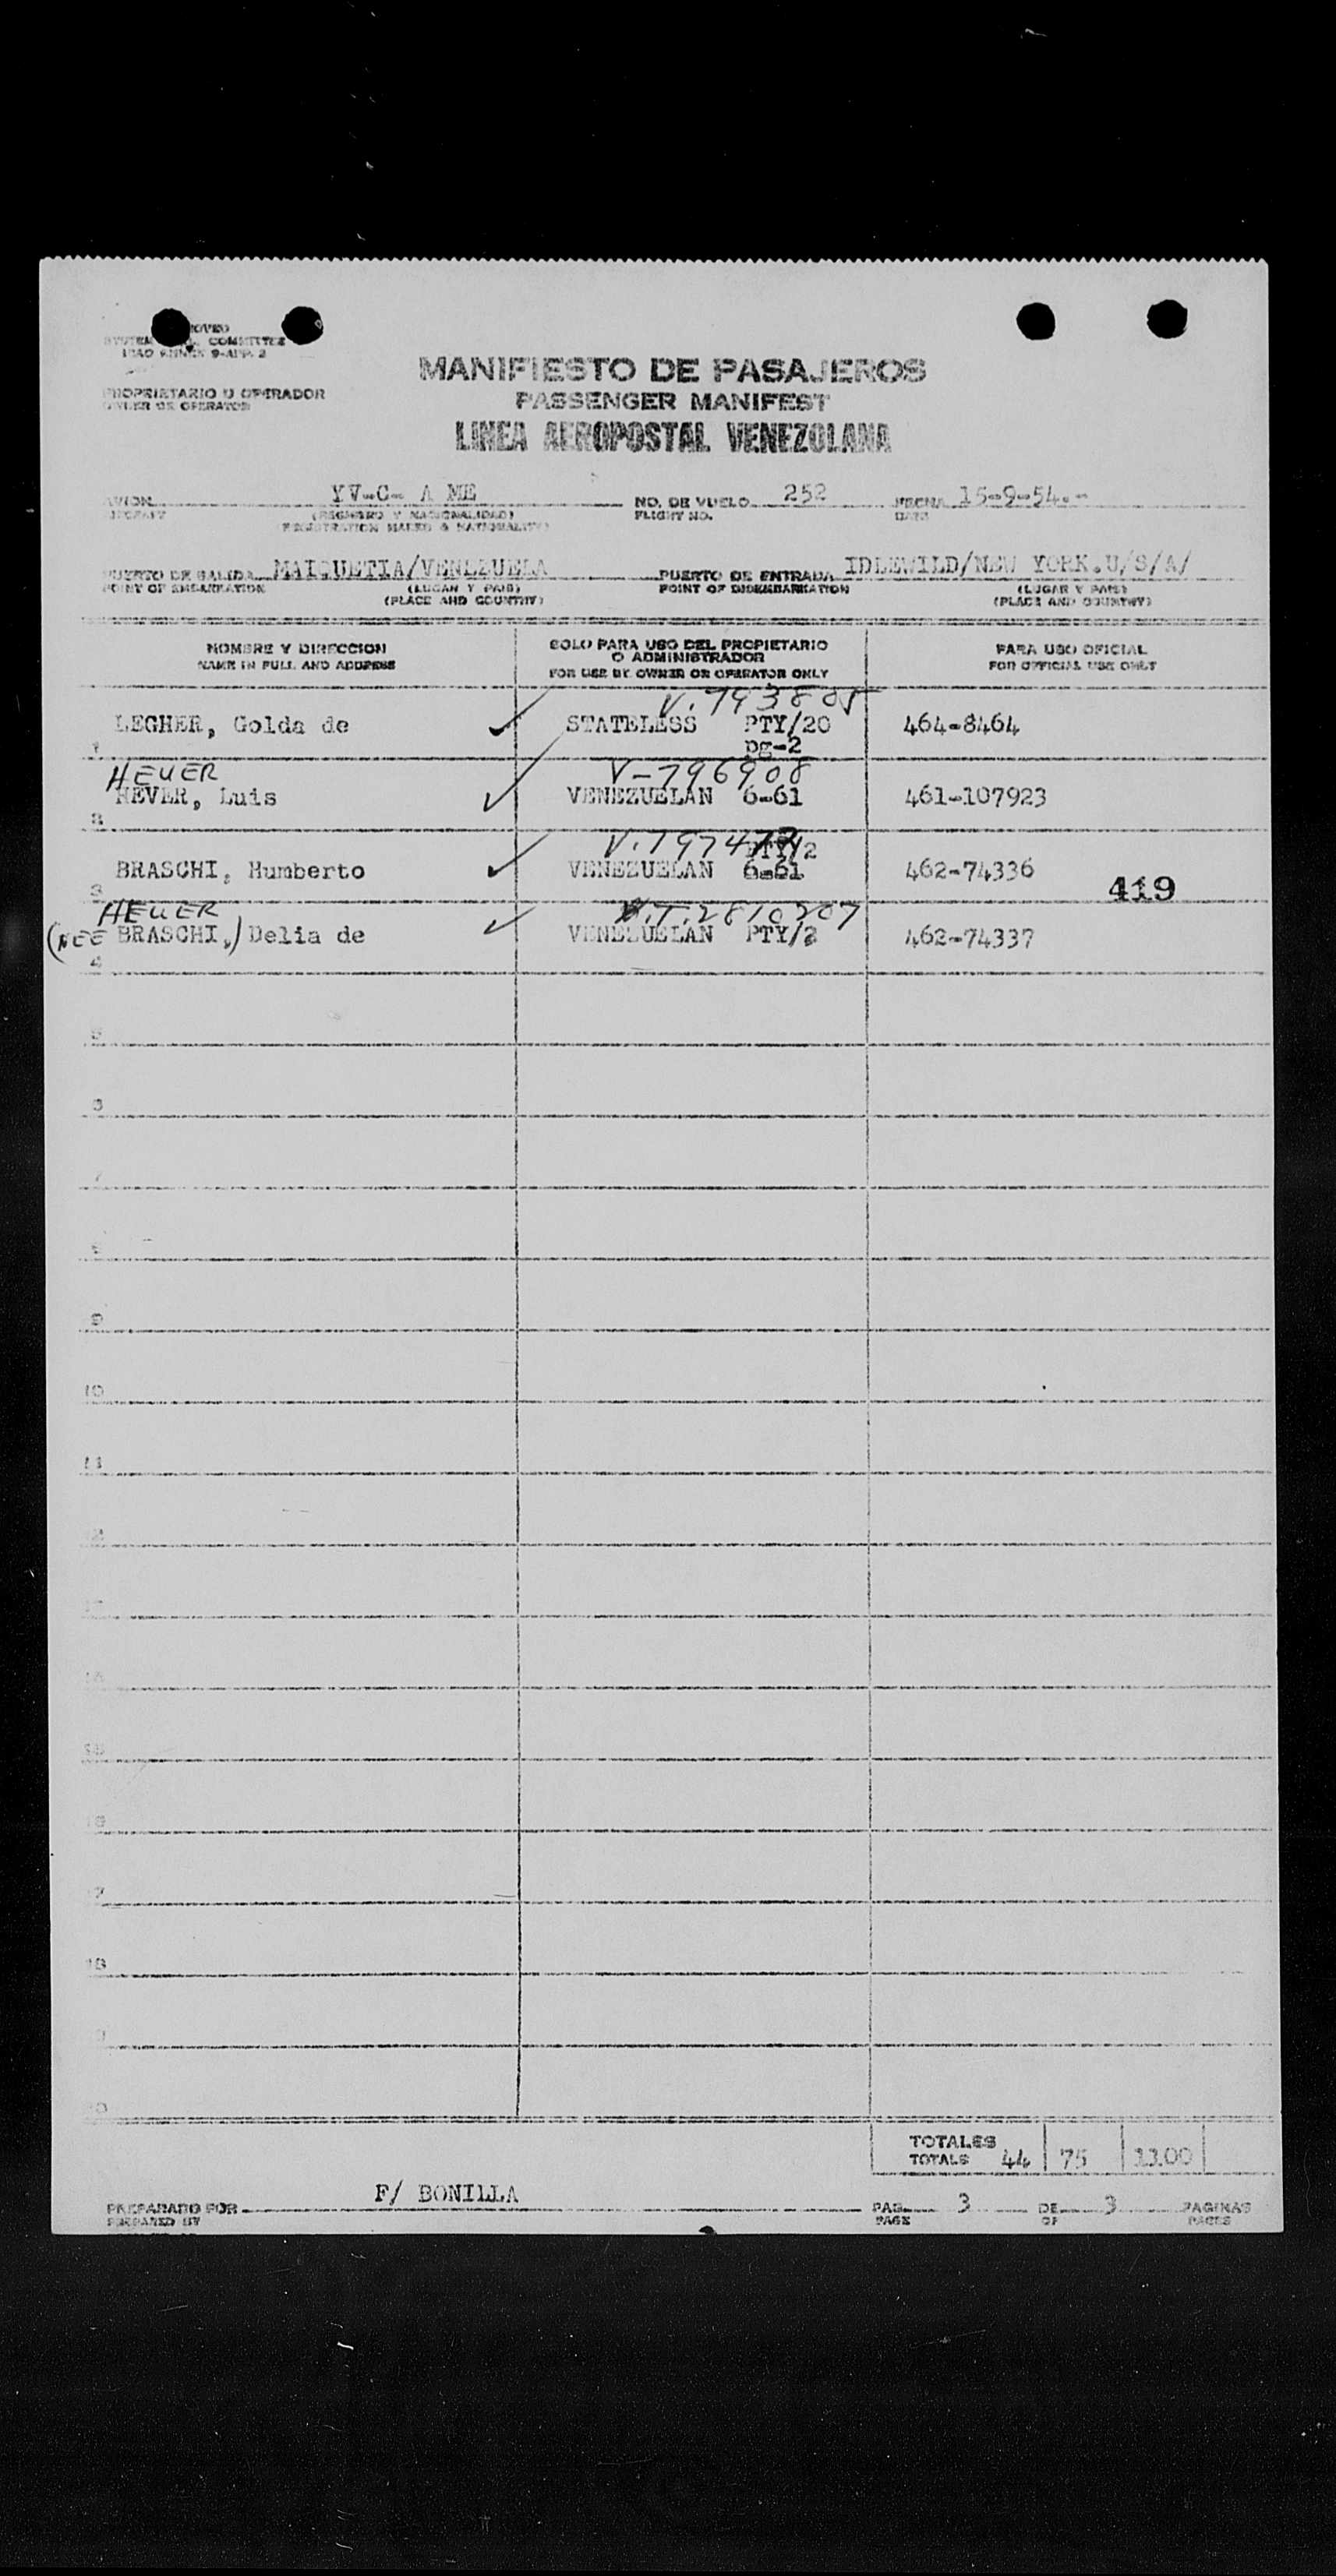 COMMITTEE
ICAO ANNEX 9-APP. 2
PROPRIETARIO U OPERADOR
OWNER OR OPERATOR
MANIFIESTO DE PASAJEROS
PASSENGER MANIFEST
LINEA AEROPOSTAL VENEZOLANA
AVION YV-C- A ME NO. DE VUELO 252 FECHA 15-9-54.-
AIRCRAFT (REGISTRO Y NACIONALIDAD) FLIGHT NO. DATE
(REGISTRATION MARKS & NATIONALITY)
PUERTO DE SALIDA MAIQUETIA/VENEZUELA PUERTO DE ENTRADA IDLEWILD/NEW YORK.U/S/A/
POINT OF EMBARKATION (LUGAR Y PAIS) POINT OF DISEMBARKATION (LUGAR Y PAIS)
(PLACE AND COUNTRY) (PLACE AND COUNTRY)
NOMBRE Y DIRECCION SOLO PARA USO DEL PROPIETARIO PARA USO OFICIAL
NAME IN FULL AND ADDRESS O ADMINISTRADOR FOR OFFICIAL USE ONLY
FOR USE BY OWNER OR OPERATOR ONLY
V.793808
LEGHER, Golda de STATELESS PTY/20 464-8464
1 pg-2
HEUER V-796908
HEVER, Luis VENEZUELAN 6-61 461-107923
2
PTY/2
BRASCHI, Humberto VENEZUELAN 6-61 462-74336
3 419
HEUER V.T.2810207
(NEE BRASCHI,) Delia de VENEZUELAN PTY/2 462-74337
4
5
6
7
8
9
10
11
12
13
14
15
16
17
18
19
20
TOTALES
TOTALS 44 75 1100
PREPARADO POR F/ BONILLA PAG. 3 DE 3 PAGINAS
PREPARED BY PAGE OF PAGES